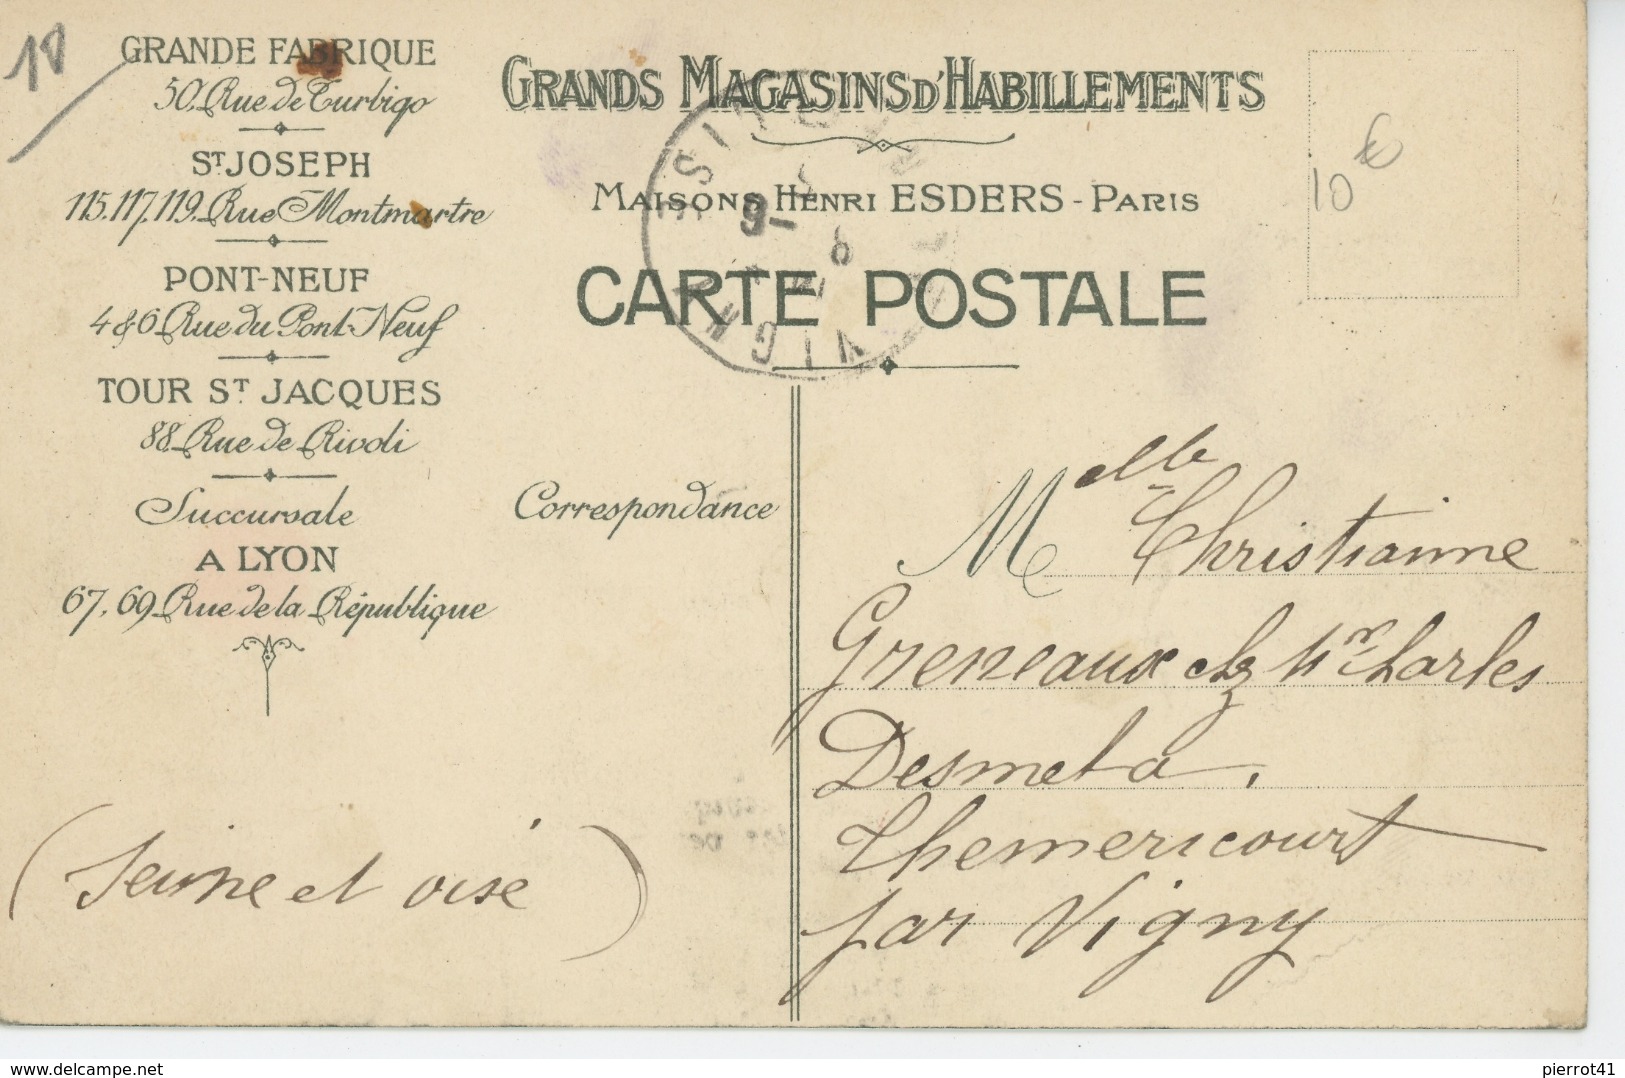 18
GRANDE FABRIQUE
50. Rue de Turbigo
ST JOSEPH
115.117.119. Rue Montmartre
PONT-NEUF
4 & 6 Rue du Pont-Neuf
TOUR ST JACQUES
88 Rue de Rivoli
Succursale
A LYON
67, 69 Rue de la République
GRANDS MAGASINS D'HABILLEMENTS
MAISONS HENRI ESDERS - PARIS
CARTE POSTALE
10 €
VIGNY
Correspondance
Melle Christianne
Greneaux chz Mr Charles
Desmet a,
Themericourt
par Vigny
(Seinne et oise)
delcampe.net
pierrot41